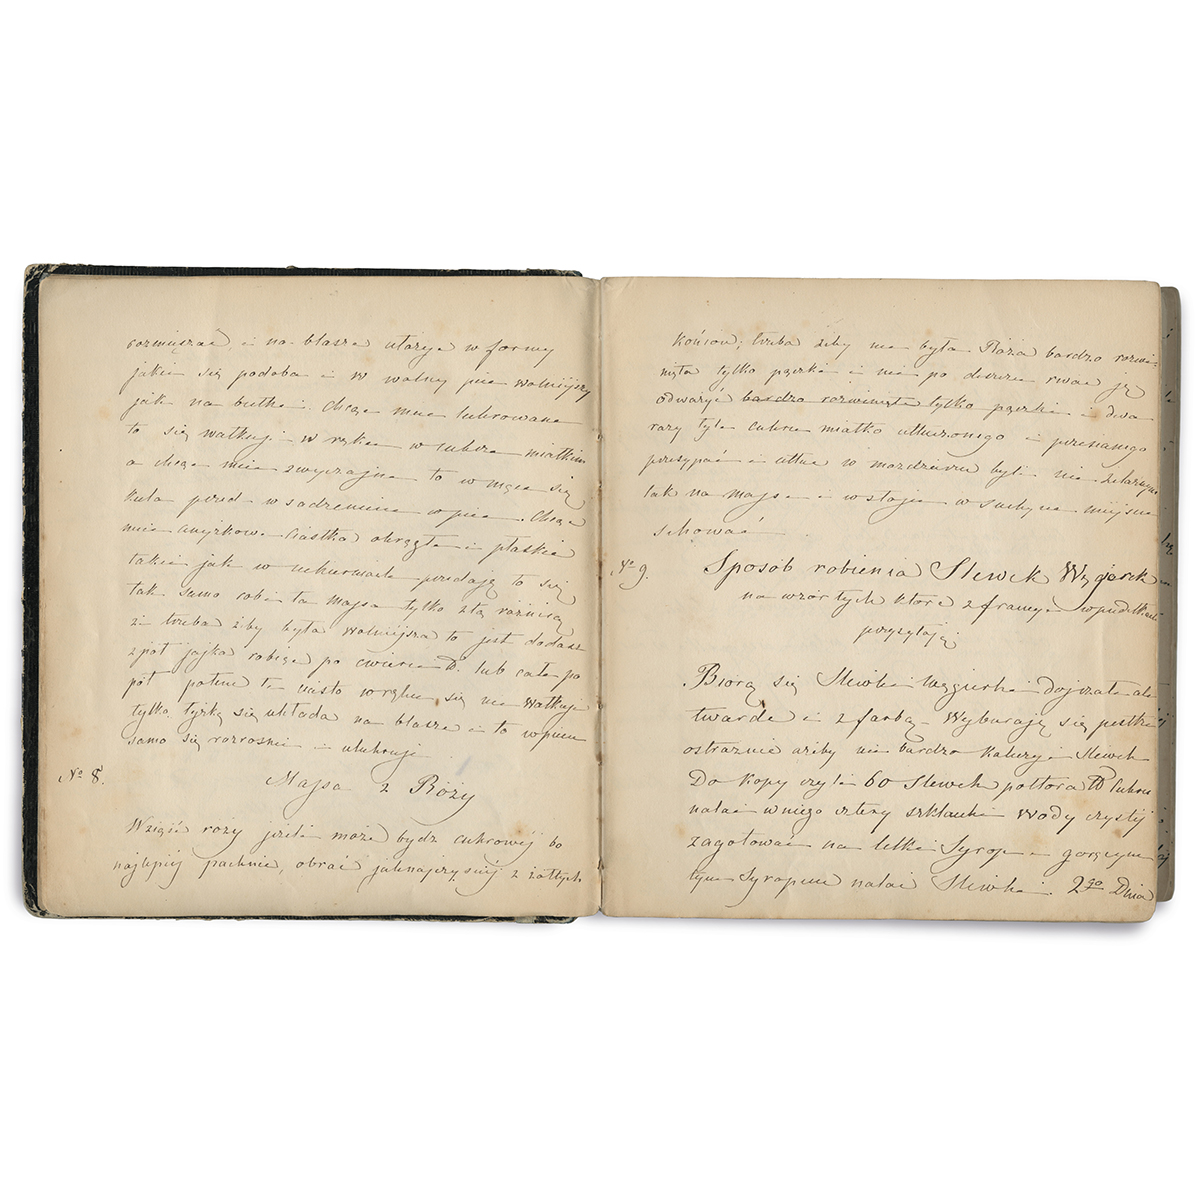 rozmięszać i na blasze utożyć w formy
jakie się podoba i w wolny piec wolniejszy
jak na bułki. Chcąc mieć lukrowane
to się wałkuje w ręku w cukrze miałkim
a chcąc mieć zwyczajne to w mące się
kula przed wsadzeniem w piec. Chcąc
mieć anyżkowe Ciastka okrągłe i płaskie
takie jak w cukierniach przedają to się
tak samo robi ta massa tylko z tą różnicą
że trzeba żeby była wolniejsza to jest dodasz
z pół jajka robiąc po ćwierci ℔. lub całe po
pół potem te ciasto w ręku się nie wałkuje
tylko łyżką się układa na blasze i to w piecu
samo się rozrośnie i
No 8.
Massa z Róży
Wziąść róży jeżeli może bydz cukrowéj bo
najlepiéj pachnie, obrać jaknajczyściéj z żółtych
końców; trzeba żeby nie była Róża bardzo rozwi-
nięta tylko pączki i nie po deszczu rwać ją
odważyć bardzo rozwinięte tylko pączki i dwa
razy tyle cukru miałko utłuczonego i przesianego
przesypać i utłuc w mozdzierzu byle nie żelaznym
tak na massę i w słoje w suchym miejscu
schować
No 9.
Sposób robienia Śliwek Węgierek
na wzór tych które z francyi w pudełkach
przysyłają
Biorą się Śliwki węgierki dojrzałe ale
twarde i z farbą. Wybierają się pestki
ostrożnie ażeby nie bardzo kaleczyć Śliwek
Do kopy czyli 60 Śliwek półtora ℔ cukru
nalać w niego cztery szklanki Wody czystéj
zagotować na letki Syrop i gorącym
tym Syropem nalać Śliwki. 2go Dnia